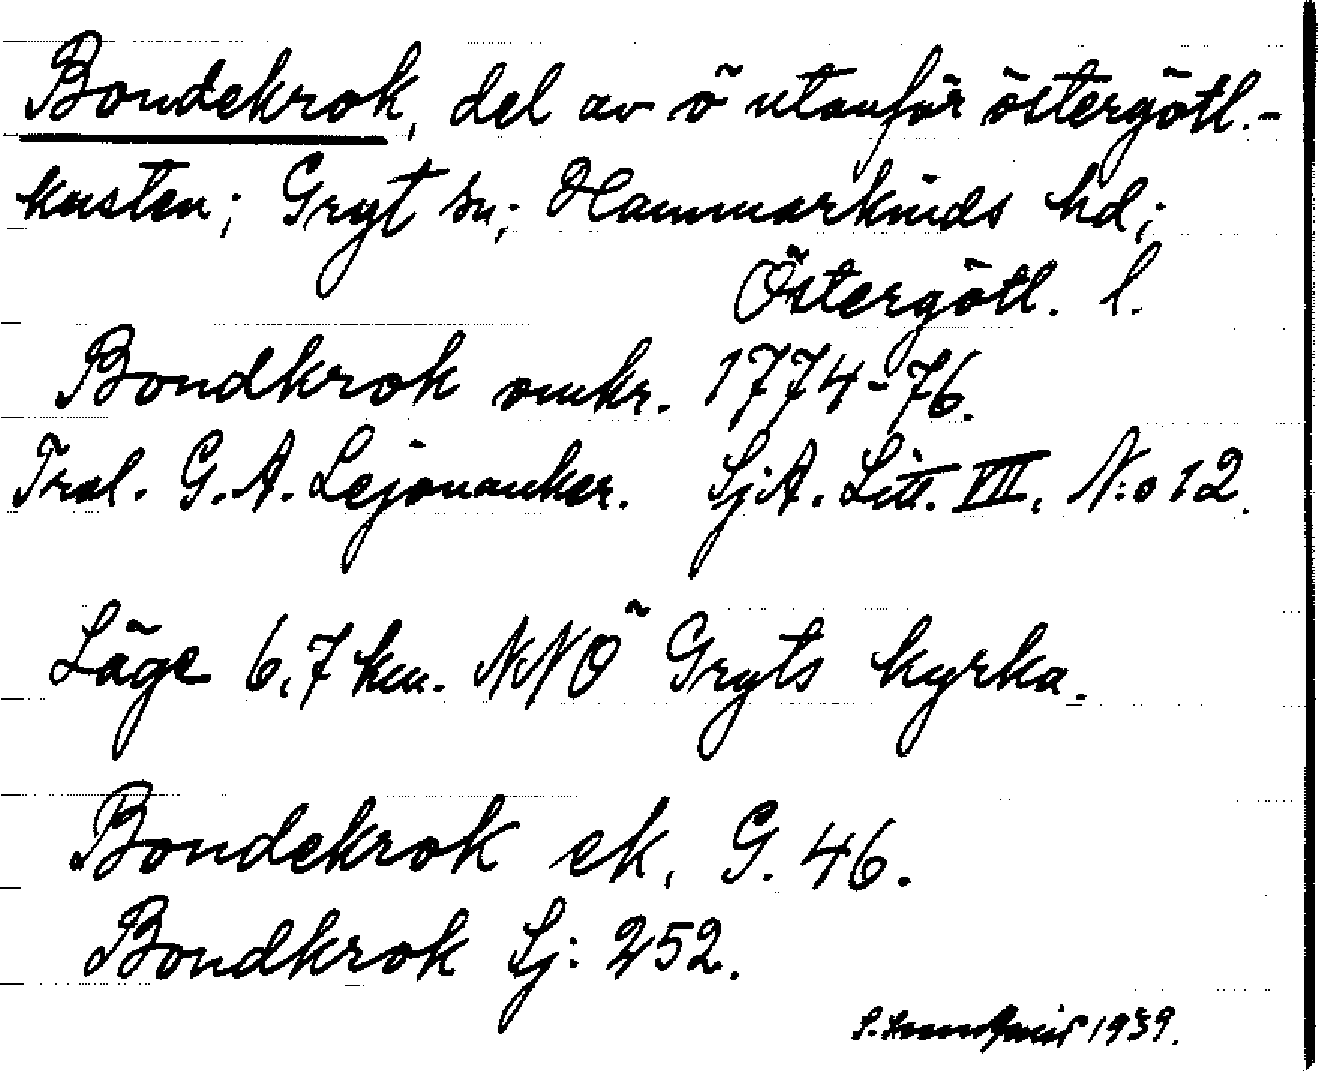 Bondekrok, del av ö utanför östergötl.-
kusten; Gryt sn; Hammarkinds hd;
Östergötl. l.
Bondkrok omkr. 1774-76.
Tral. G. A. Lejonanker. SjA. Litt. VII. N:o 12.
Läge 6,7 km. NNÖ Gryts kyrka.
Bondekrok ek, G. 46.
Bondkrok Sj: 252.
1939.